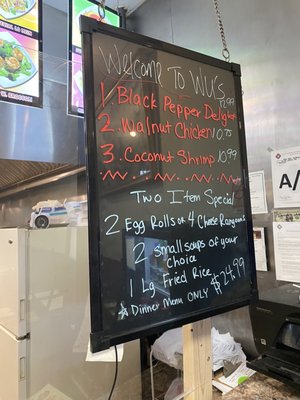 Welcome To Wu's
1. Black Pepper Delight 12.99
2. Walnut Chicken 10.75
3. Coconut Shrimp 10.99
Two Item Special
2 Egg Rolls or 4 Cheese Rangoons
2 small soups of your
choice
1 Lg Fried Rice
$24.99
☆ Dinner Menu ONLY
A/